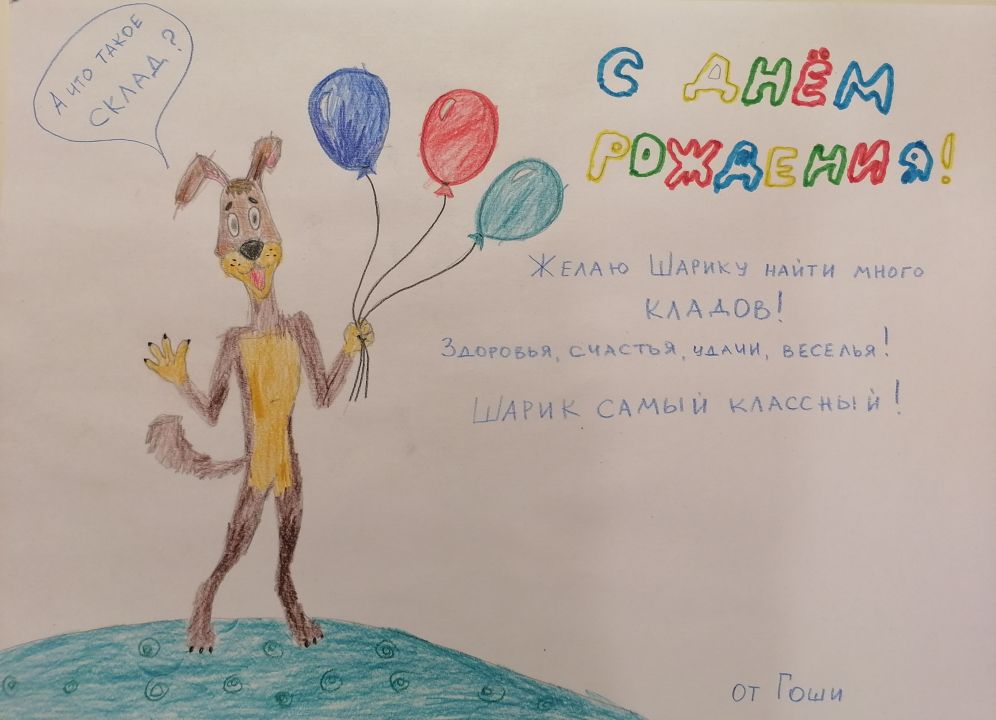 А ЧТО ТАКОЕ
СКЛАД?
С ДНЁМ
РОЖДЕНИЯ!
ЖЕЛАЮ ШАРИКУ НАЙТИ МНОГО
КЛАДОВ!
ЗДОРОВЬЯ, СЧАСТЬЯ, УДАЧИ, ВЕСЕЛЬЯ!
ШАРИК САМЫЙ КЛАССНЫЙ!
ОТ ГОШИ